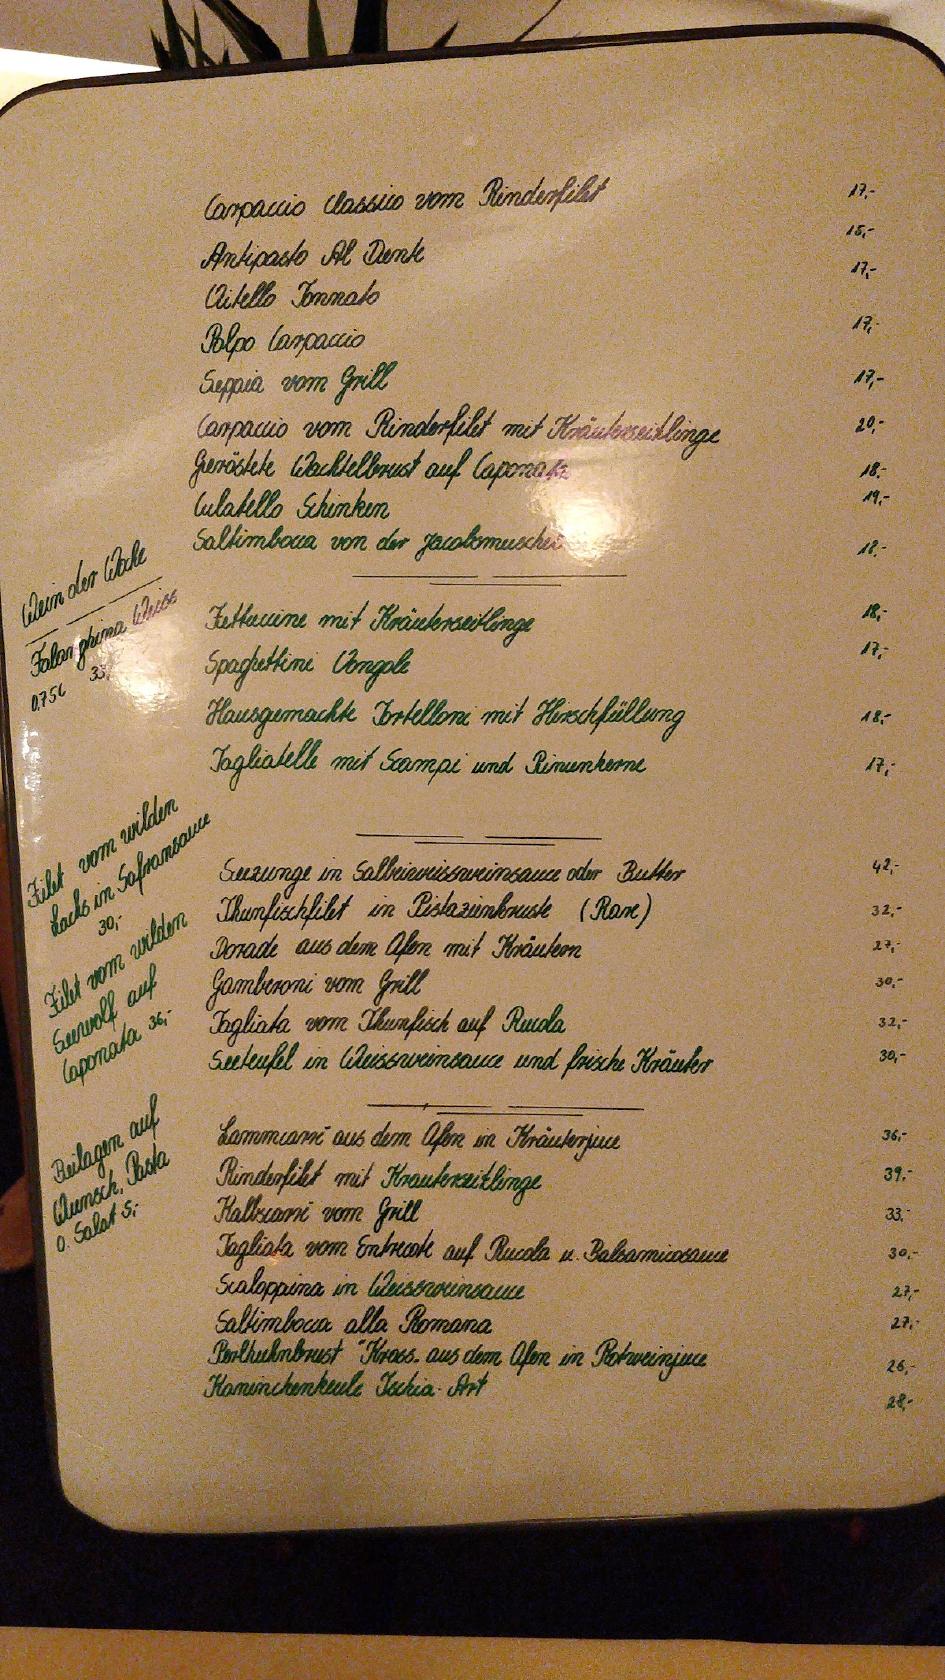 Carpaccio Classico vom Rinderfilet 17,-
Antipasto Al Dente 15,-
Vitello Tonnato 17,-
Polpo Carpaccio 17,-
Seppia vom Grill 17,-
Carpaccio vom Rinderfilet mit Kräuterseitlinge 20,-
Geröstete Wachtelbrust auf Caponata 18.-
Culatello Schinken 19,-
Saltimbocca von der Jacobsmuschel 18.-
Wein der Woche
Falanghina Weiss
0,75l 33,
Fettuccine mit Kräuterseitlinge 18,-
Spaghettini Vongole 17,-
Hausgemachte Tortelloni mit Hirschfüllung 18,-
Tagliatelle mit Scampi und Pinienkerne 17,-
Filet vom wilden
Lachs in Safransauce
30,-
Filet vom wilden
Seewolf auf
Caponata 36,-
Seezunge in Salbeiweissweinsauce oder Butter 42,-
Thunfischfilet in Pistazienkruste (Rare) 32,-
Dorade aus dem Ofen mit Kräutern 27,-
Gamberoni vom Grill 30,-
Tagliata vom Thunfisch auf Rucola 32,-
Seeteufel in Weissweinsauce und frische Kräuter 30,-
Beilagen auf
Wunsch, Pasta
o. Salat 5,-
Lammcarré aus dem Ofen in Kräuterjuce 36,-
Rinderfilet mit Krauterseitlinge 39,-
Kalbscarré vom Grill 33,-
Tagliata vom Entrecote auf Rucola u. Balsamicosauce 30,-
Scaloppina in Weissweinsauce 27,-
Saltimbocca alla Romana 27,-
Perlhuhnbrust "Kross. aus dem Ofen in Rotweinjuce 26,-
Kaninchenkeule Ischia-Art 28,-